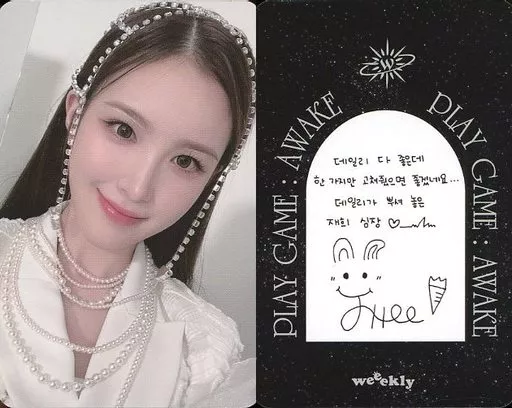 PLAY GAME : AWAKE
PLAY GAME : AWAKE
W
데일리 다 좋은데
한 가지만 고쳐줬으면 좋겠네요...
데일리가 뿌셔 놓은
재희 심장 ♡
JHee
weeekly